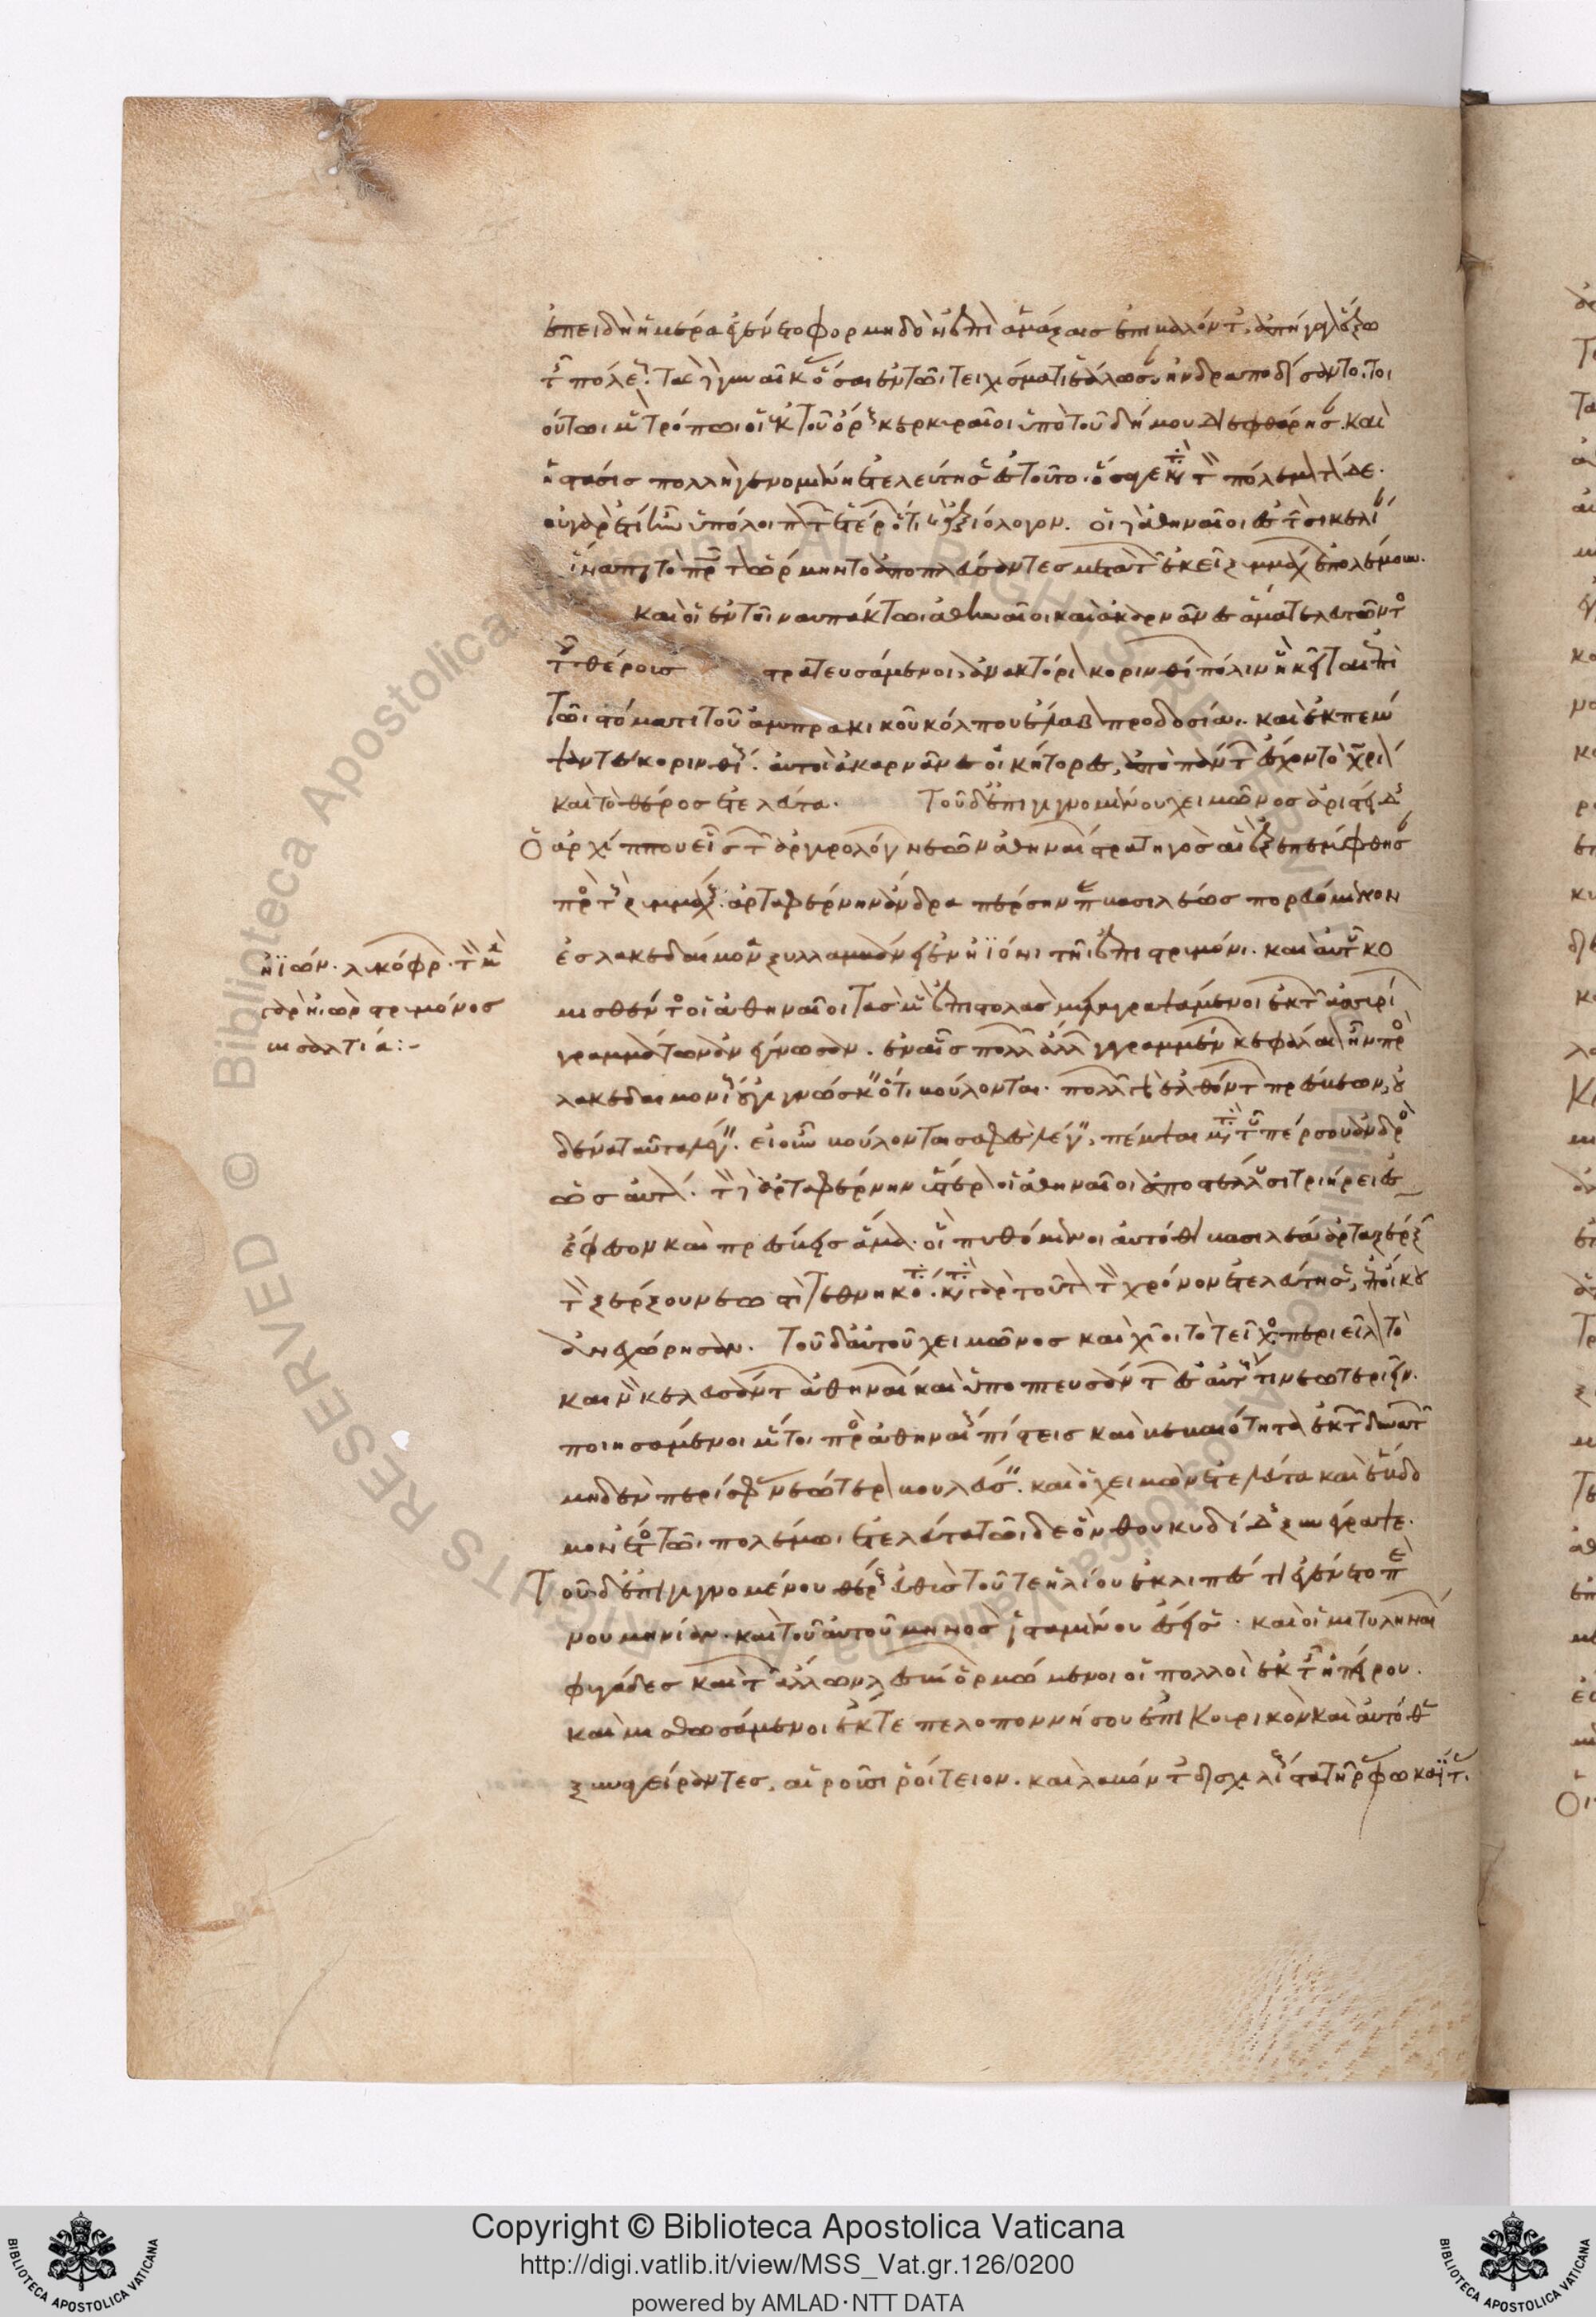 ἐπειδὴ ἡμέρα ἐγένετο φορμηδὸν ἐπὶ ἁμάξας ἐπιβαλόντες ἀπήγαγον ἔξω
τῆς πόλεως. τὰς δὲ γυναῖκας ὅσαι ἐν τῶι τειχίσματι ἑάλωσαν, ἠνδραποδίσαντο. τοι
ούτωι μὲν τρόπωι οἱ ἐκ τοῦ ὄρους κερκυραῖοι ὑπὸ τοῦ δήμου διεφθάρησαν. καὶ
ἡ στάσις πολλὴ γενομένη ἐτελεύτησεν ἐς τοῦτο. ὅσα γε κατὰ τὸν πόλεμον τόνδε.
οὐ γὰρ ἔτι ἦν ὑπόλοιπον τῶν ἑτέρων ὅτι καὶ ἀξιόλογον. οἱ δὲ ἀθηναῖοι ἐς τὴν σικελίαν
ἵναπερ τὸ πρῶτον ὥρμηντο ἀποπλεύσαντες μετὰ τῶν ἐκεῖ ξυμμάχων ἐπολέμουν.
καὶ οἱ ἐν τῆι ναυπάκτωι ἀθηναῖοι καὶ ἀκαρνᾶνες ἅμα τελευτῶντος
τοῦ θέρους στρατευσάμενοι, ἀνακτόριον κορινθίων πόλιν ἣ κεῖται ἐπὶ
τῶι στόματι τοῦ ἀμπρακικοῦ κόλπου ἔλαβον προδοσίαι. καὶ ἐκπέμ
ψαντες κορινθίους. αὐτοὶ ἀκαρνᾶνες οἰκήτορες, ἀπὸ πάντων ἔσχον τὸ χωρίον
καὶ τὸ θέρος ἐτελεύτα. Τοῦ δ' ἐπιγιγνομένου χειμῶνος ἀριστείδης
ὁ ἀρχίππου εἷς τῶν ἀργυρολόγων νεῶν ἀθηναίων στρατηγὸς αἳ ἐξεπέμφθησαν
πρὸς τοὺς ξυμμάχους. ἀρταφέρνην ἄνδρα πέρσην παρὰ βασιλέως πορευόμενον
ἐς λακεδαίμονα ξυλλαμβάνει ἐν ἠϊόνι τῆι ἐπὶ στρυμόνι. καὶ αὐτοῦ κο
μισθέντος οἱ ἀθηναῖοι τὰς μὲν ἐπιστολὰς μεταγραψάμενοι ἐκ τῶν ἀσσυρίων
γραμμάτων ἀνέγνωσαν. ἐν αἷς πολλῶν ἄλλων γεγραμμένων κεφάλαιον ἦν πρὸς
λακεδαιμονίους οὐ γιγνώσκειν ὅτι βούλονται. πολλῶν γὰρ ἐλθόντων πρέσβεων, οὐ
δένα ταῦτα λέγειν. εἰ οὖν βούλονται σαφὲς λέγειν, πέμψαι μετὰ τοῦ πέρσου ἄνδρας
ὡς αὐτόν. τὸν δὲ ἀρταφέρνην ὕστερον οἱ ἀθηναῖοι ἀποστέλλουσι τριήρει ἐς
ἔφεσον καὶ πρέσβεις ἅμα. οἳ πυθόμενοι αὐτόθι βασιλέα ἀρταξέρξην
τὸν ξέρξου νεωστὶ τεθνηκότα. κατὰ γὰρ τοῦτον τὸν χρόνον ἐτελεύτησεν, ἐπ' οἴκου
ἀνεχώρησαν. Τοῦ δ' αὐτοῦ χειμῶνος καὶ χῖοι τὸ τεῖχος περιεῖλον τὸ
καινὸν κελευσάντων ἀθηναίων καὶ ὑποπτευσάντων ἐς αὐτούς τι νεωτεριεῖν.
ποιησάμενοι μέντοι πρὸς ἀθηναίους πίστεις καὶ βεβαιότητα ἐκ τῶν δυνατῶν
μηδὲν περὶ σφᾶς νεώτερον βουλεύσειν. καὶ ὁ χειμὼν ἐτελεύτα καὶ ἕβδο
μον ἔτος τῶι πολέμωι ἐτελεύτα τῶιδε ὃν θουκυδίδης ξυνέγραψε.
Τοῦ δ' ἐπιγιγνομένου θέρους εὐθὺς τοῦ τε ἡλίου ἐκλιπές τι ἐγένετο περὶ
νουμηνίαν. καὶ τοῦ αὐτοῦ μηνὸς ἱσταμένου ἔσεισε. καὶ οἱ μιτυληναίων
φυγάδες καὶ τῶν ἄλλων λεσβίων ὁρμώμενοι οἱ πολλοὶ ἐκ τῆς ἠπείρου.
καὶ μισθωσάμενοι ἔκ τε πελοποννήσου ἐπικουρικὸν καὶ αὐτόθεν
ξυναγείραντες, αἱροῦσι ῥοίτειον. καὶ λαβόντες δισχιλίους στατῆρας φωκαΐτας.
ἠϊών. λυκόφρων
στρυμόνος
βισαλτία:-
Copyright © Biblioteca Apostolica Vaticana
http://digi.vatlib.it/view/MSS_Vat.gr.126/0200
powered by AMLAD·NTT DATA
BIBLIOTECA APOSTOLICA VATICANA
BIBLIOTECA APOSTOLICA VATICANA